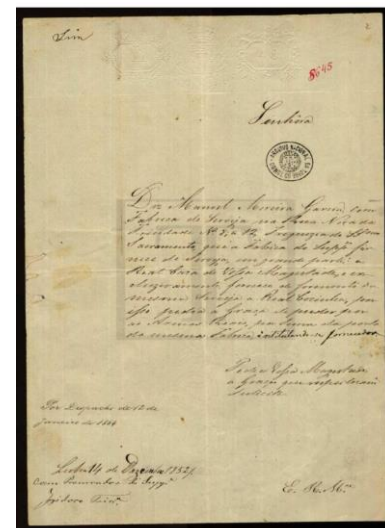 Sim
2
8645
Senhora
Diz Manuel Moreira Garcia com
Fabrica de Cerveja na Rua Nova da
Trindade Nº
Sacramento que a Fabrica do Suppe for
nece de Cerveja, em grande parte a
Real Casa de Vossa Magestade, e
fornece de fermento da
mesma Cerveja a Real Cozinha, por
isso pede a Graça de poder por
as Armas Reais, por sima da porta
da mesma Fabrica intitulando-se fornecedor
Pede a Vossa Magestade
a Graça que respeitosam
Por Despacho de 12 de
Janeiro de
Lisboa 14 de Dezembro
Com Procurador do Suppe
Isidoro
E. R. Mce